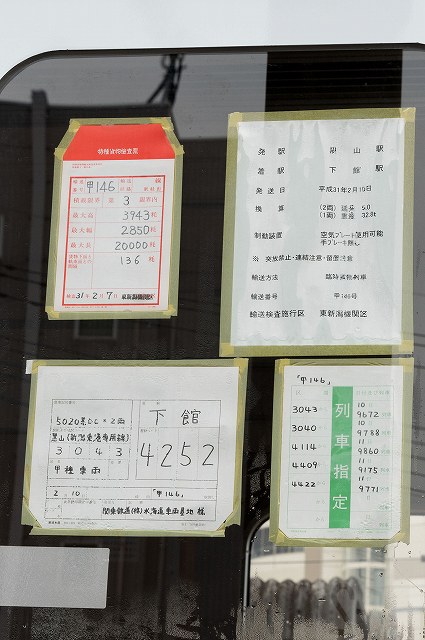 特種貨物検査票
甲146
積載限界 第 3 限界内
最大高 3943 粍
最大幅 2850 粍
最大長 20000 粍
136 粍
31年2月7日 東新潟機関区
発駅 黒山駅
着駅 下館駅
発送日 平成31年2月10日
換算 (2両) 延長 5.0
(1両) 重量 32.8t
制動装置 空気ブレーキ使用可能
手ブレーキ無し
※ 突放禁止・連結注意・留置注意
輸送方法 臨時貨物列車
輸送番号 甲146号
輸送検査施行区 東新潟機関区
5020系DC×2両
黒山(新潟東港専用線)
3043
甲種車両
2 10 「甲146」
関東鉄道(株)水海道車両基地 様
下館
4252
「甲146」
列車指定
3043 10 9672
3040 10 9788
4114 11 9860
4409 11 9175
4422 11 9771